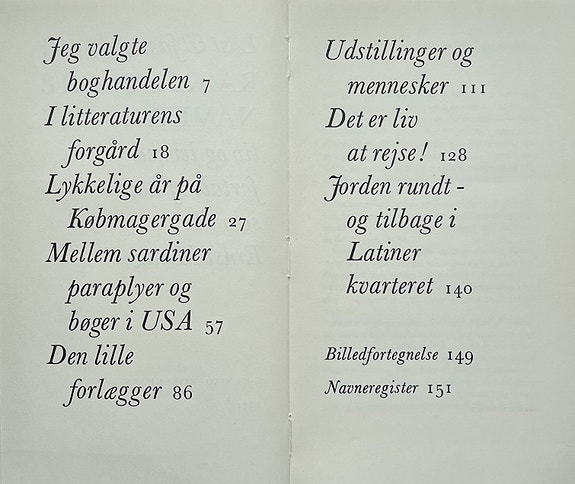 Jeg valgte
boghandelen 7
I litteraturens
forgård 18
Lykkelige år på
Købmagergade 27
Mellem sardiner
paraplyer og
bøger i USA 57
Den lille
forlægger 86
Udstillinger og
mennesker 111
Det er liv
at rejse! 128
Jorden rundt -
og tilbage i
Latiner
kvarteret 140
Billedfortegnelse 149
Navneregister 151